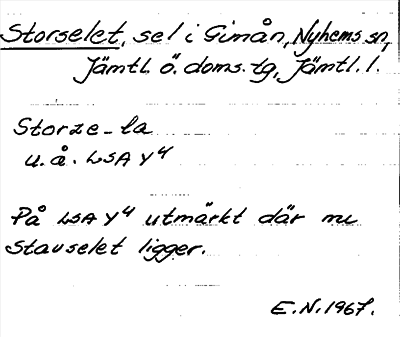 Storselet, sel i Gimån, Nyhems sn,
Jämtl. Ö. doms. tg, Jämtl. l.
Storze-ta
u.å. LSA Y4
På LSA Y4 utmärkt där nu
Stavselet ligger.
E.N. 1967.